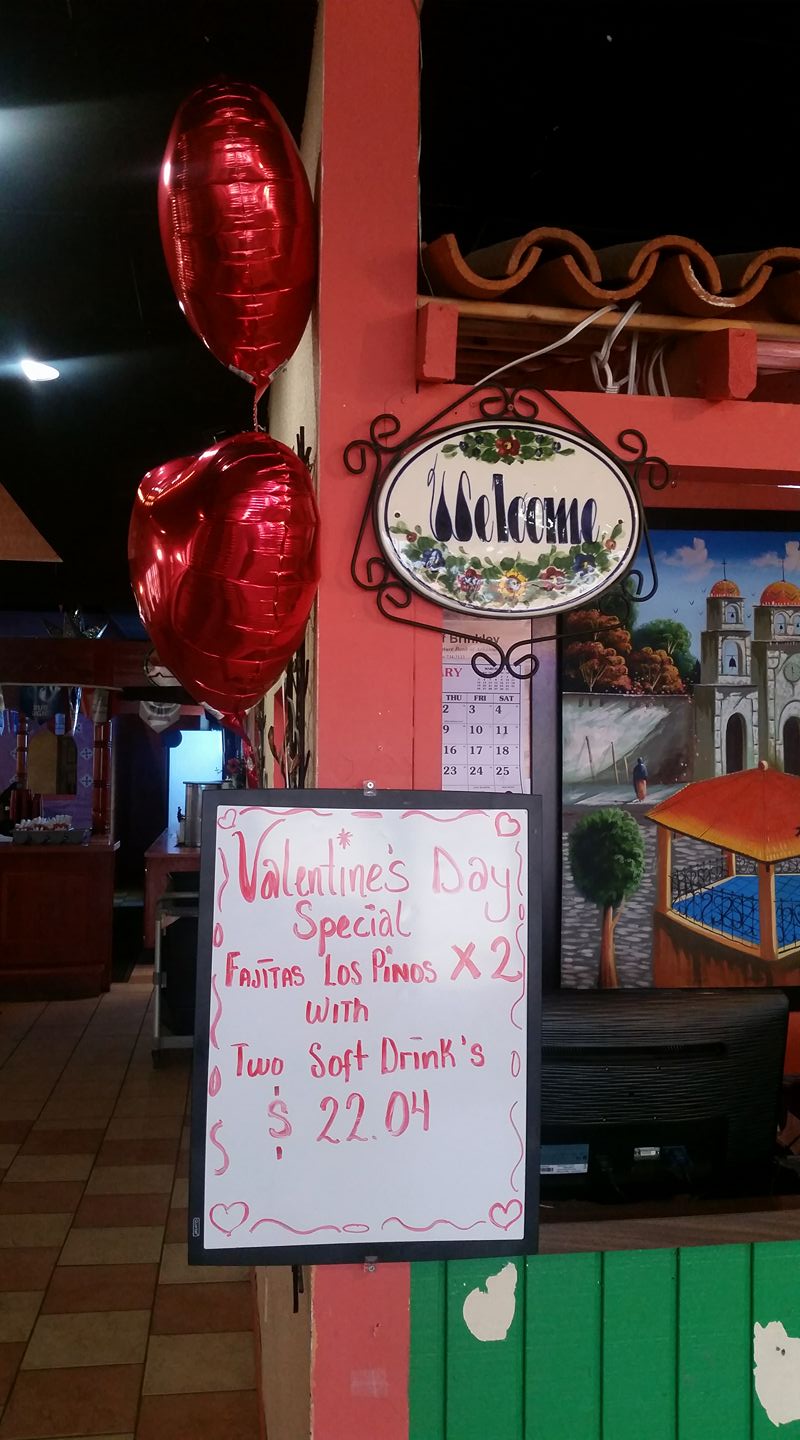 Welcome
f Brinkley
RY
THU FRI SAT
2 3 4
9 10 11
16 17 18
23 24 25
Valentine's Day
Special
FAJITAS LOS PINOS X 2
WITH
Two Soft Drink's
$ 22.04